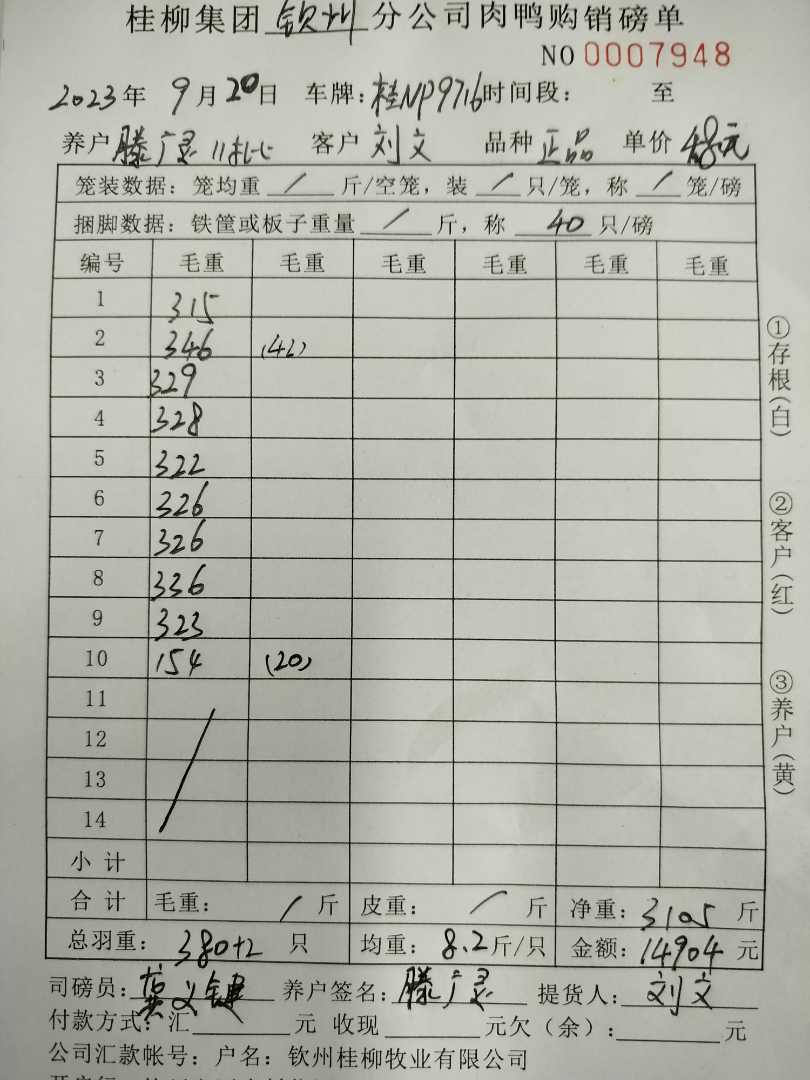 桂柳集团 钦州 分公司肉鸭购销磅单
NO 0007948
2023年 9月20日 车牌：桂NP9716 时间段： 至
养户 滕广灵 客户 刘文 品种 正品 单价 4.8元
笼装数据：笼均重 / 斤/空笼，装 / 只/笼，称 / 笼/磅
捆脚数据：铁筐或板子重量 / 斤，称 40 只/磅
编号 毛重 毛重 毛重 毛重 毛重 毛重
1 315
2 346 (42)
3 329
4 328
5 322
6 326
7 326
8 336
9 323
10 154 (20)
11
12
13
14
小计
合计 毛重： / 斤 皮重： / 斤 净重：3105 斤
总羽重：380+2 只 均重：8.2斤/只 金额：14904 元
司磅员：黄义键 养户签名：滕广灵 提货人：刘文
付款方式：汇 元 收现 元欠（余）： 元
公司汇款帐号：户名：钦州桂柳牧业有限公司
①存根（白）
②客户（红）
③养户（黄）